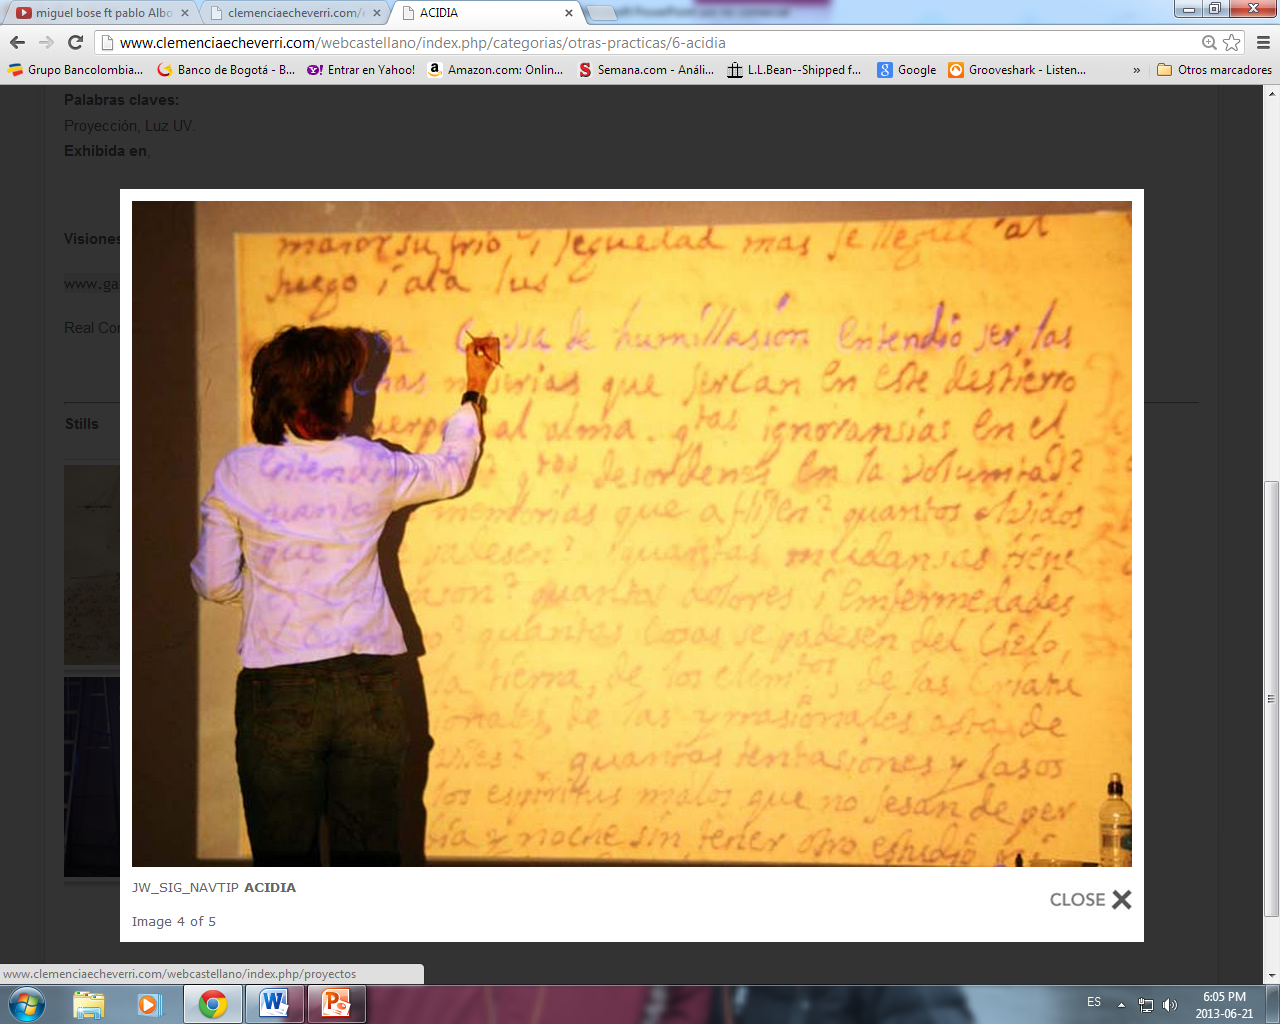 miguel bose ft pablo Albo
clemenciaecheverri.com/
ACIDIA
www.clemenciaecheverri.com/webcastellano/index.php/categorias/otras-practicas/6-acidia
Grupo Bancolombia...
Banco de Bogotá - B...
Entrar en Yahoo!
Amazon.com: Onlin...
Semana.com - Análi...
L.L.Bean--Shipped f...
Google
Grooveshark - Listen...
»
Otros marcadores
Palabras claves:
Proyección, Luz UV.
Exhibida en,
Visiones
www.ga
Real Con
Stills
maior su frio i sequedad mas se llegue al
fuego i a la lus
Causa de humillasión entendió ser, las
miserias que sercan en este destierro
al alma. qtas ignoransias en el
qtos desordenes en la voluntad?
memorias que aflijen? quantos olvidos
padesen? quantas mudansas tiene
quantos dolores i enfermedades
quantas cosas se padesen del cielo,
la tierra, de los elemtos, de las criatu
de las yrrasionales
quantas tentasiones y lasos
los espiritus malos que no sesan de per
día y noche sin tener otro
JW_SIG_NAVTIP ACIDIA
Image 4 of 5
CLOSE
www.clemenciaecheverri.com/webcastellano/index.php/proyectos
ES
6:05 PM
2013-06-21